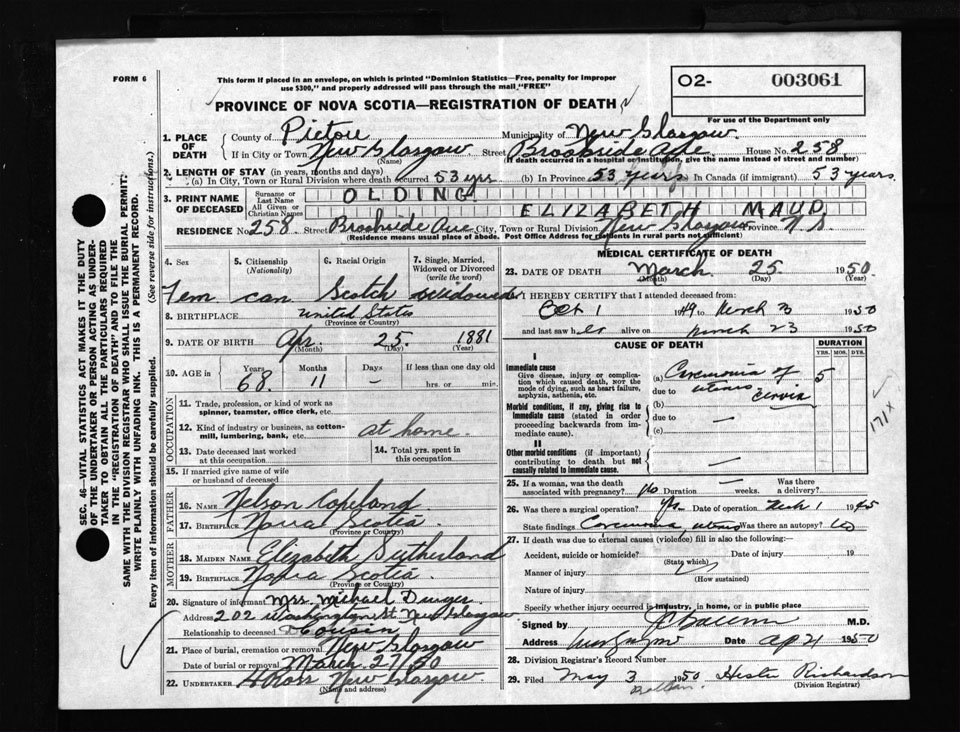 FORM 6
This form if placed in an envelope, on which is printed "Dominion Statistics—Free, penalty for improper
use $300," and properly addressed will pass through the mail "FREE"
O2- 003061
For use of the Department only
PROVINCE OF NOVA SCOTIA—REGISTRATION OF DEATH
1. PLACE OF DEATH County of Pictou Municipality of New Glasgow
If in City or Town New Glasgow (Name) Street Brookside Ave House No. 258
(If death occurred in a hospital or institution, give the name instead of street and number)
2. LENGTH OF STAY (in years, months and days)
(a) In City, Town or Rural Division where death occurred 53 yrs (b) In Province 53 years In Canada (if immigrant) 53 years
3. PRINT NAME OF DECEASED Surname or Last Name OLDING
All Given or Christian Names ELIZABETH MAUD
RESIDENCE No. 258 Street Brookside Ave City, Town or Rural Division New Glasgow Province N.S.
(Residence means usual place of abode. Post Office Address for residents in rural parts not sufficient)
4. Sex 5. Citizenship (Nationality) 6. Racial Origin 7. Single, Married, Widowed or Divorced (write the word)
Fem can Scotch Widowed
8. BIRTHPLACE United States
(Province or Country)
9. DATE OF BIRTH Apr. 25 1881
(Month) (Day) (Year)
10. AGE in Years Months Days If less than one day old
68 11 — hrs. or min.
OCCUPATION
11. Trade, profession, or kind of work as spinner, teamster, office clerk, etc.
12. Kind of industry or business, as cotton-mill, lumbering, bank, etc. at home
13. Date deceased last worked at this occupation 14. Total yrs. spent in this occupation
15. If married give name of wife or husband of deceased
FATHER
16. Name Nelson Copeland
17. Birthplace Nova Scotia
(Province or Country)
MOTHER
18. MAIDEN NAME Elizabeth Sutherland
19. Birthplace Nova Scotia
(Province or Country)
20. Signature of informant Mrs. Michael
Address 202 Washington St New Glasgow
Relationship to deceased Cousin
21. Place of burial, cremation or removal New Glasgow
Date of burial or removal March 27/50
22. UNDERTAKER Ross New Glasgow
(Name and address)
MEDICAL CERTIFICATE OF DEATH
23. DATE OF DEATH March 25 1950
(Month) (Day) (Year)
I HEREBY CERTIFY that I attended deceased from:
Oct 1 1949 to March 23 1950
and last saw her alive on March 23 1950
CAUSE OF DEATH DURATION
YRS. MOS. DYS.
I
Immediate cause
Give disease, injury or complication which caused death, NOT the mode of dying, such as heart failure, asphyxia, asthenia, etc.
(a) Carcinoma of 5
due to uterus cervix
Morbid conditions, if any, giving rise to immediate cause (stated in order proceeding backwards from immediate cause).
(b)
due to —
(c)
II
Other morbid conditions (if important) contributing to death but not causally related to immediate cause. —
171X
25. If a woman, was the death associated with pregnancy? No Duration — weeks. Was there a delivery? —
26. Was there a surgical operation? Date of operation 1 1945
State findings Carcinoma uterus Was there an autopsy? No
27. If death was due to external causes (violence) fill in also the following:
Accident, suicide or homicide? Date of injury 19
(State which)
Manner of injury
(How sustained)
Nature of injury
Specify whether injury occurred in industry, in home, or in public place
Signed by M.D.
Address Date Ap 21 1950
28. Division Registrar's Record Number
29. Filed May 3 1950 Hester Richardson
(Division Registrar)
SEC. 46—VITAL STATISTICS ACT MAKES IT THE DUTY
OF THE UNDERTAKER OR PERSON ACTING AS UNDER-
TAKER TO OBTAIN ALL THE PARTICULARS REQUIRED
IN THE "REGISTRATION OF DEATH" AND TO FILE THE
SAME WITH THE DIVISION REGISTRAR WHO SHALL ISSUE THE BURIAL PERMIT.
WRITE PLAINLY WITH UNFADING INK. THIS IS A PERMANENT RECORD.
Every item of information should be carefully supplied. (See reverse side for instructions.)